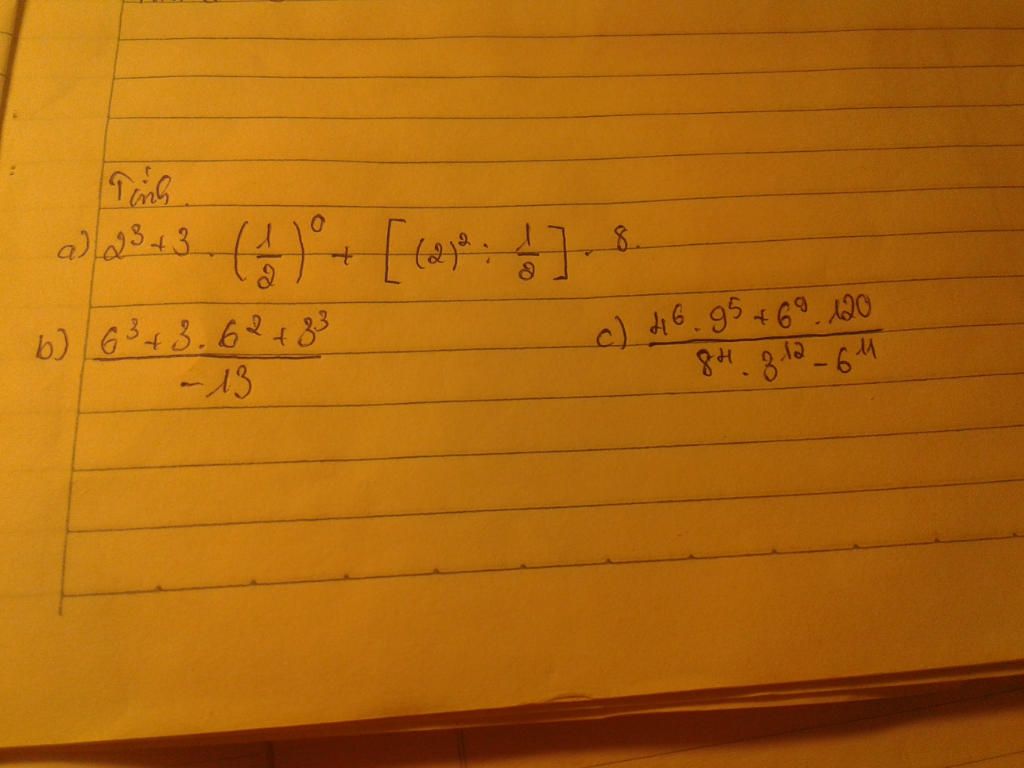 Tính
a) 2³ + 3 . (1/2)⁰ + [(2)² : 1/2] . 8.
b) (6³ + 3 . 6² + 3³)/(-13)
c) (4⁶ . 9⁵ + 6⁹ . 120)/(8⁴ . 3¹² - 6¹¹)